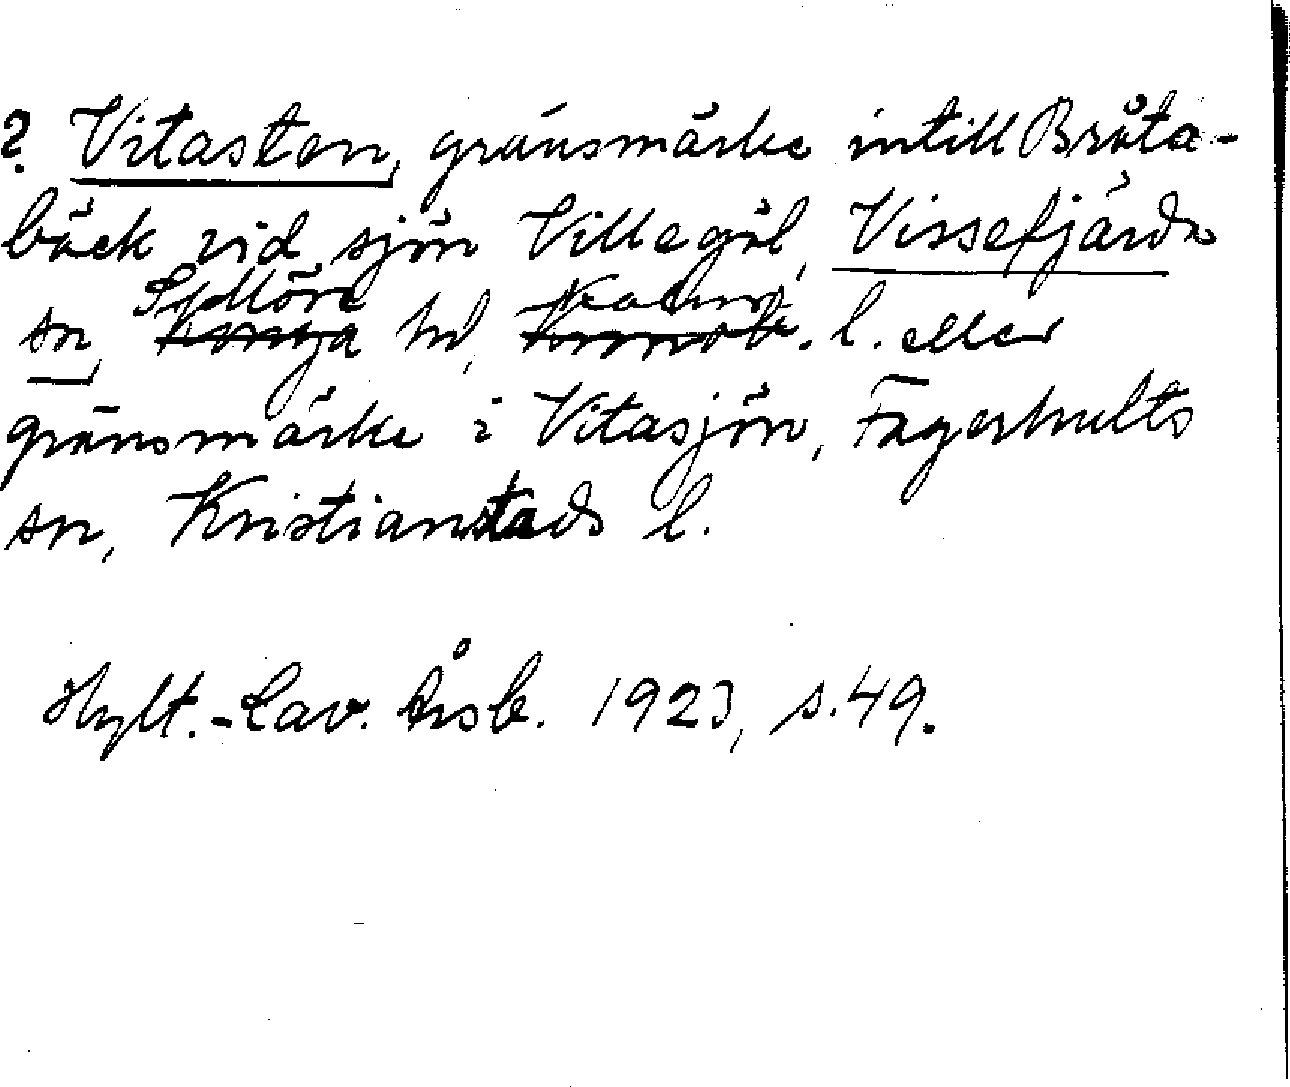 ? Vitasten, gränsmärke intill Bråta-
bäck vid sjön Villegöl, Vissefjärda
Sydmöre Kalmar
sn, Konga hd, Kronob. l. eller
gränsmärke i Vitasjön, Fagerhults
sn, Kristianstads l.
Hylt.-Cav. Årsb. 1923, s. 49.